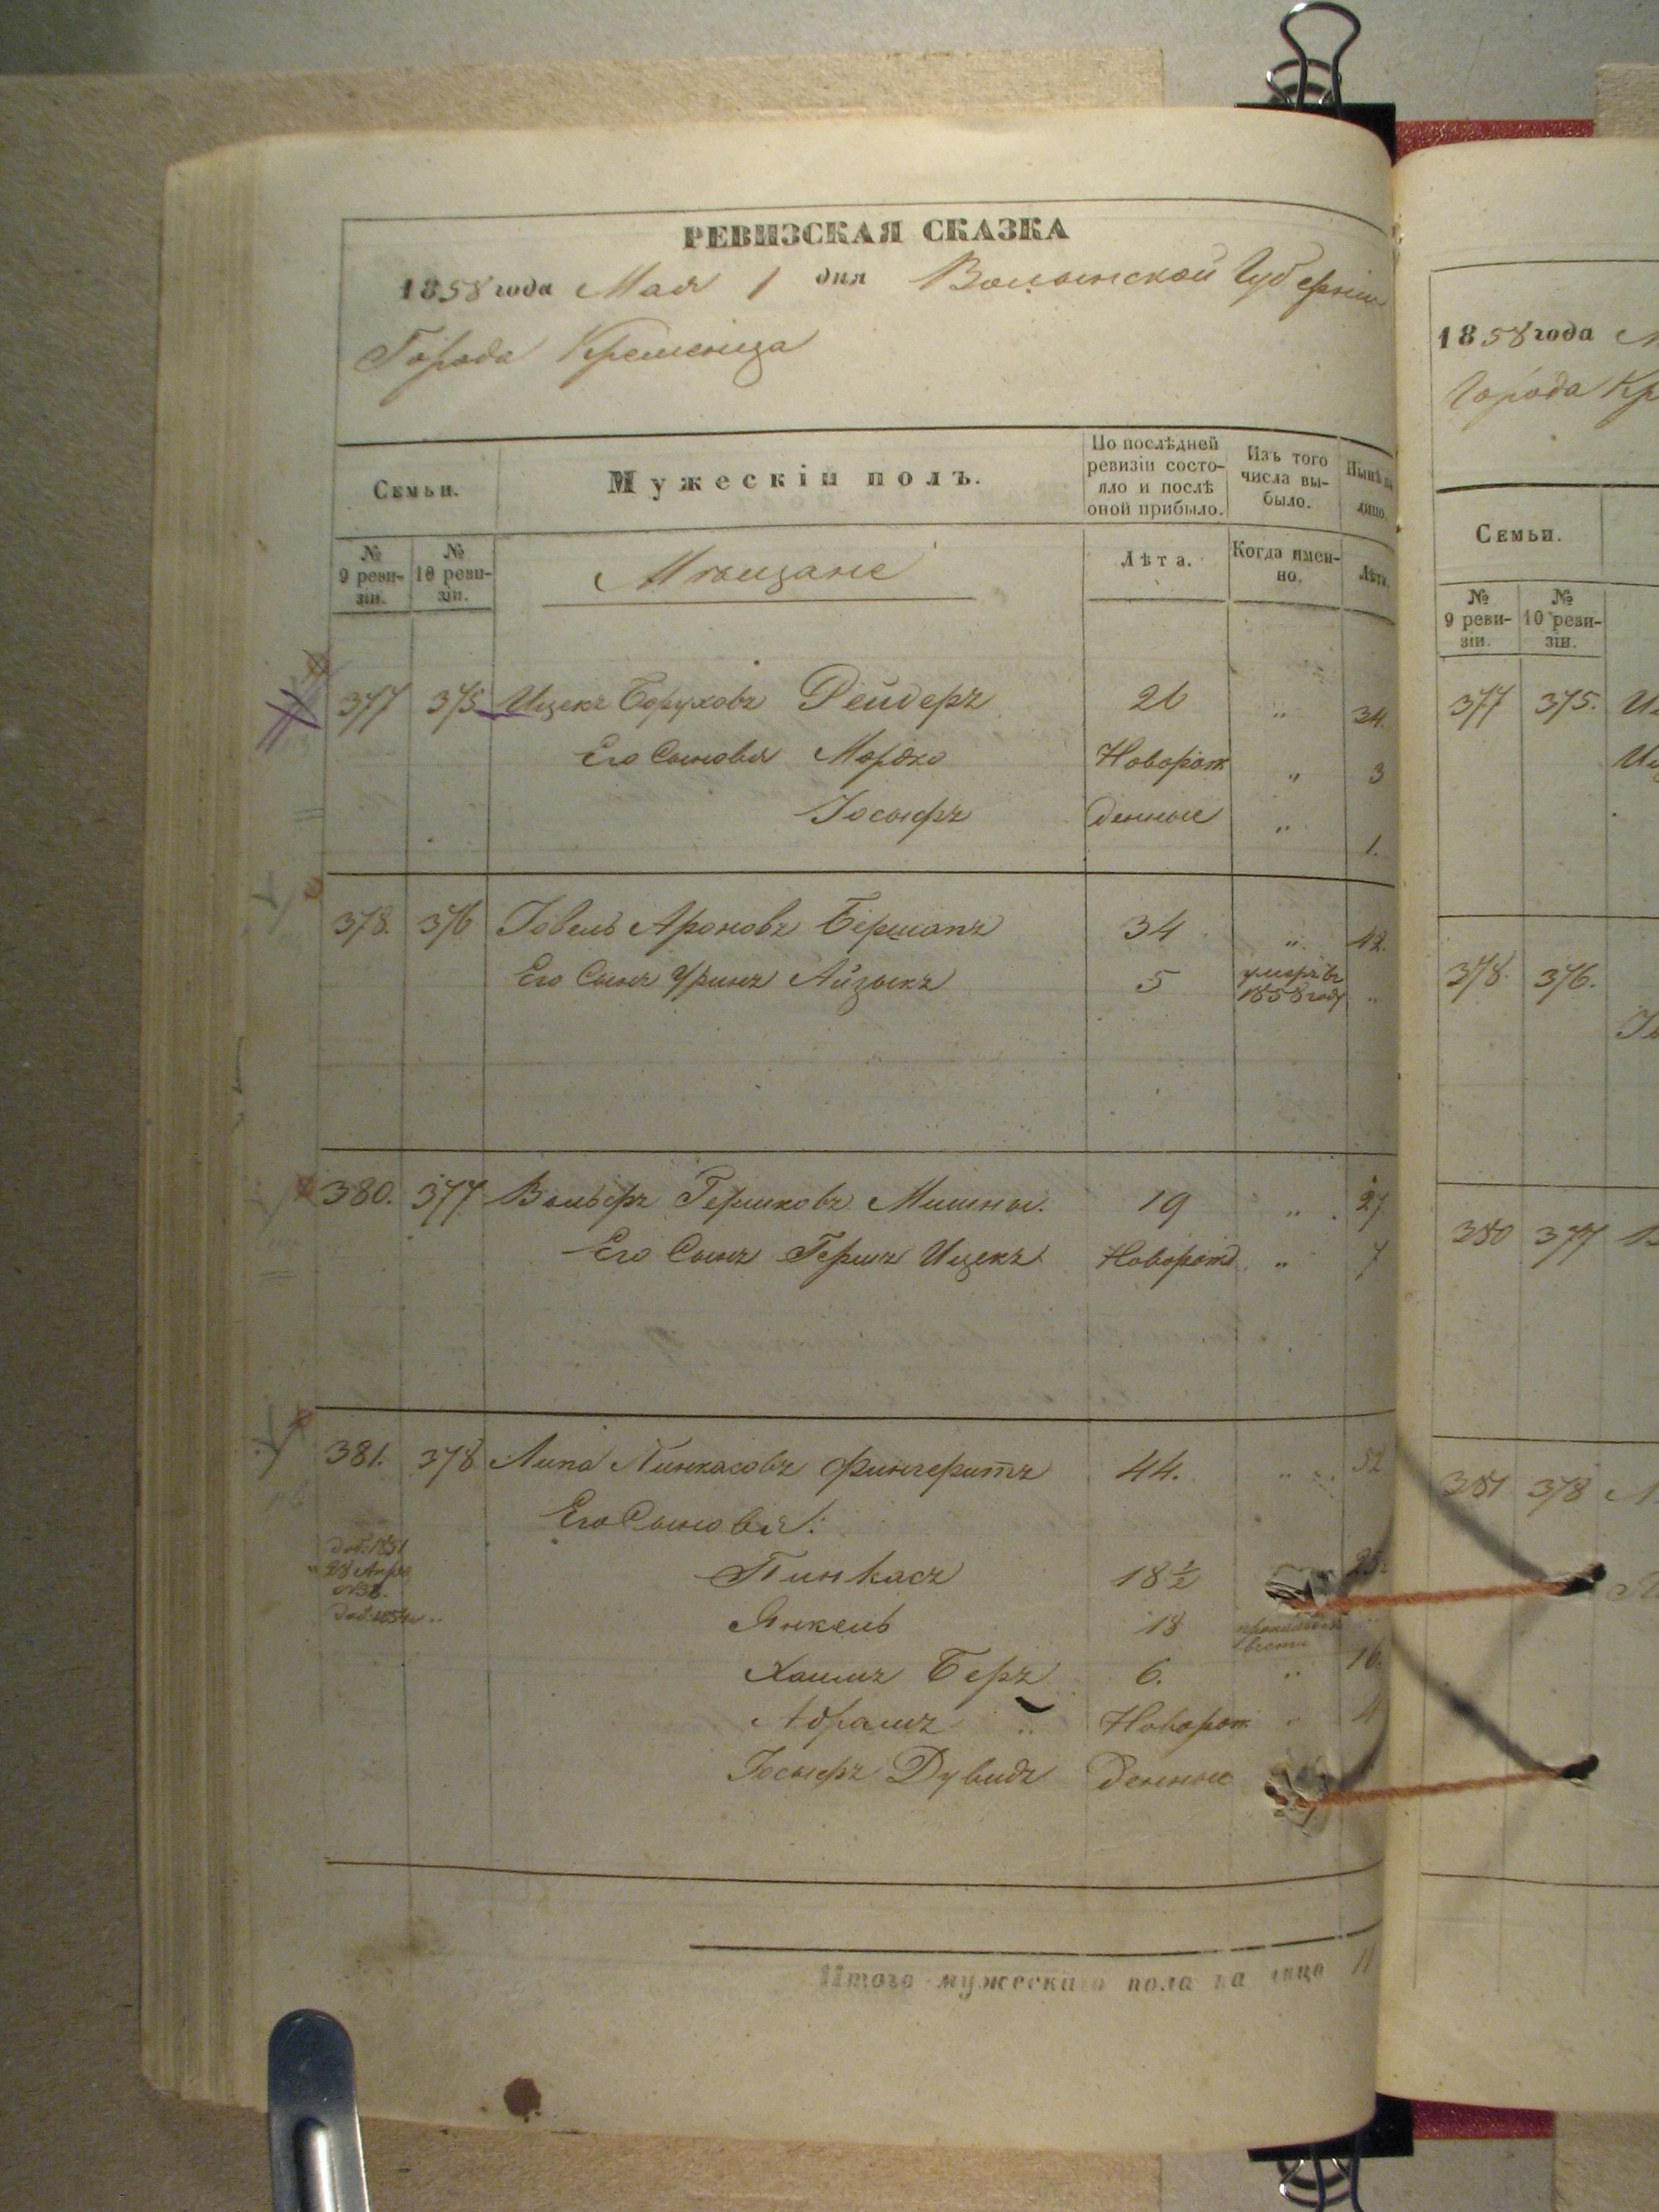 РЕВИЗСКАЯ СКАЗКА
1858 года Мая 1 дня Волынской Губерніи
Города Кременца
Семьи.
Мужескій полъ.
По послѣдней ревизіи состо-
яло и послѣ
оной прибыло.
Изъ того
числа вы-
было.
Нынѣ на
лицо.
№
9 реви-
зіи.
№
10 реви-
зіи.
Мѣщане
Лѣта.
Когда имен-
но.
Лѣта.
377 375 Ицекъ Боруховъ Рейдеръ 26 " 34.
Его Сыновья Мордко Новорож " 3
Іосыфъ денные " 1.
378. 376 Іовель Ароновъ Бершапъ 34 " 42.
Его Сынъ Уринъ Айзыкъ 5 умеръ въ 1858 году "
380. 377 Вольфъ Гершковъ Мишны. 19 " 27
Его Сынъ Гершъ Ицекъ Новорожд. " 7
381. 378 Липа Пинкасовъ Фингерутъ 44. " 52
Его Сыновья:
Пинкасъ 18½
28 Апр.
Янкель 18
Хаимъ Беръ 6. " 16.
Абрамъ " Новорож " 4
Іосыфъ Дувидъ денные
Итого мужескаго пола на лицо 11
1858 года
Города Кр
Семьи.
№
9 реви-
зіи.
№
10 реви-
зіи.
377 375.
378. 376.
380 377
381 378